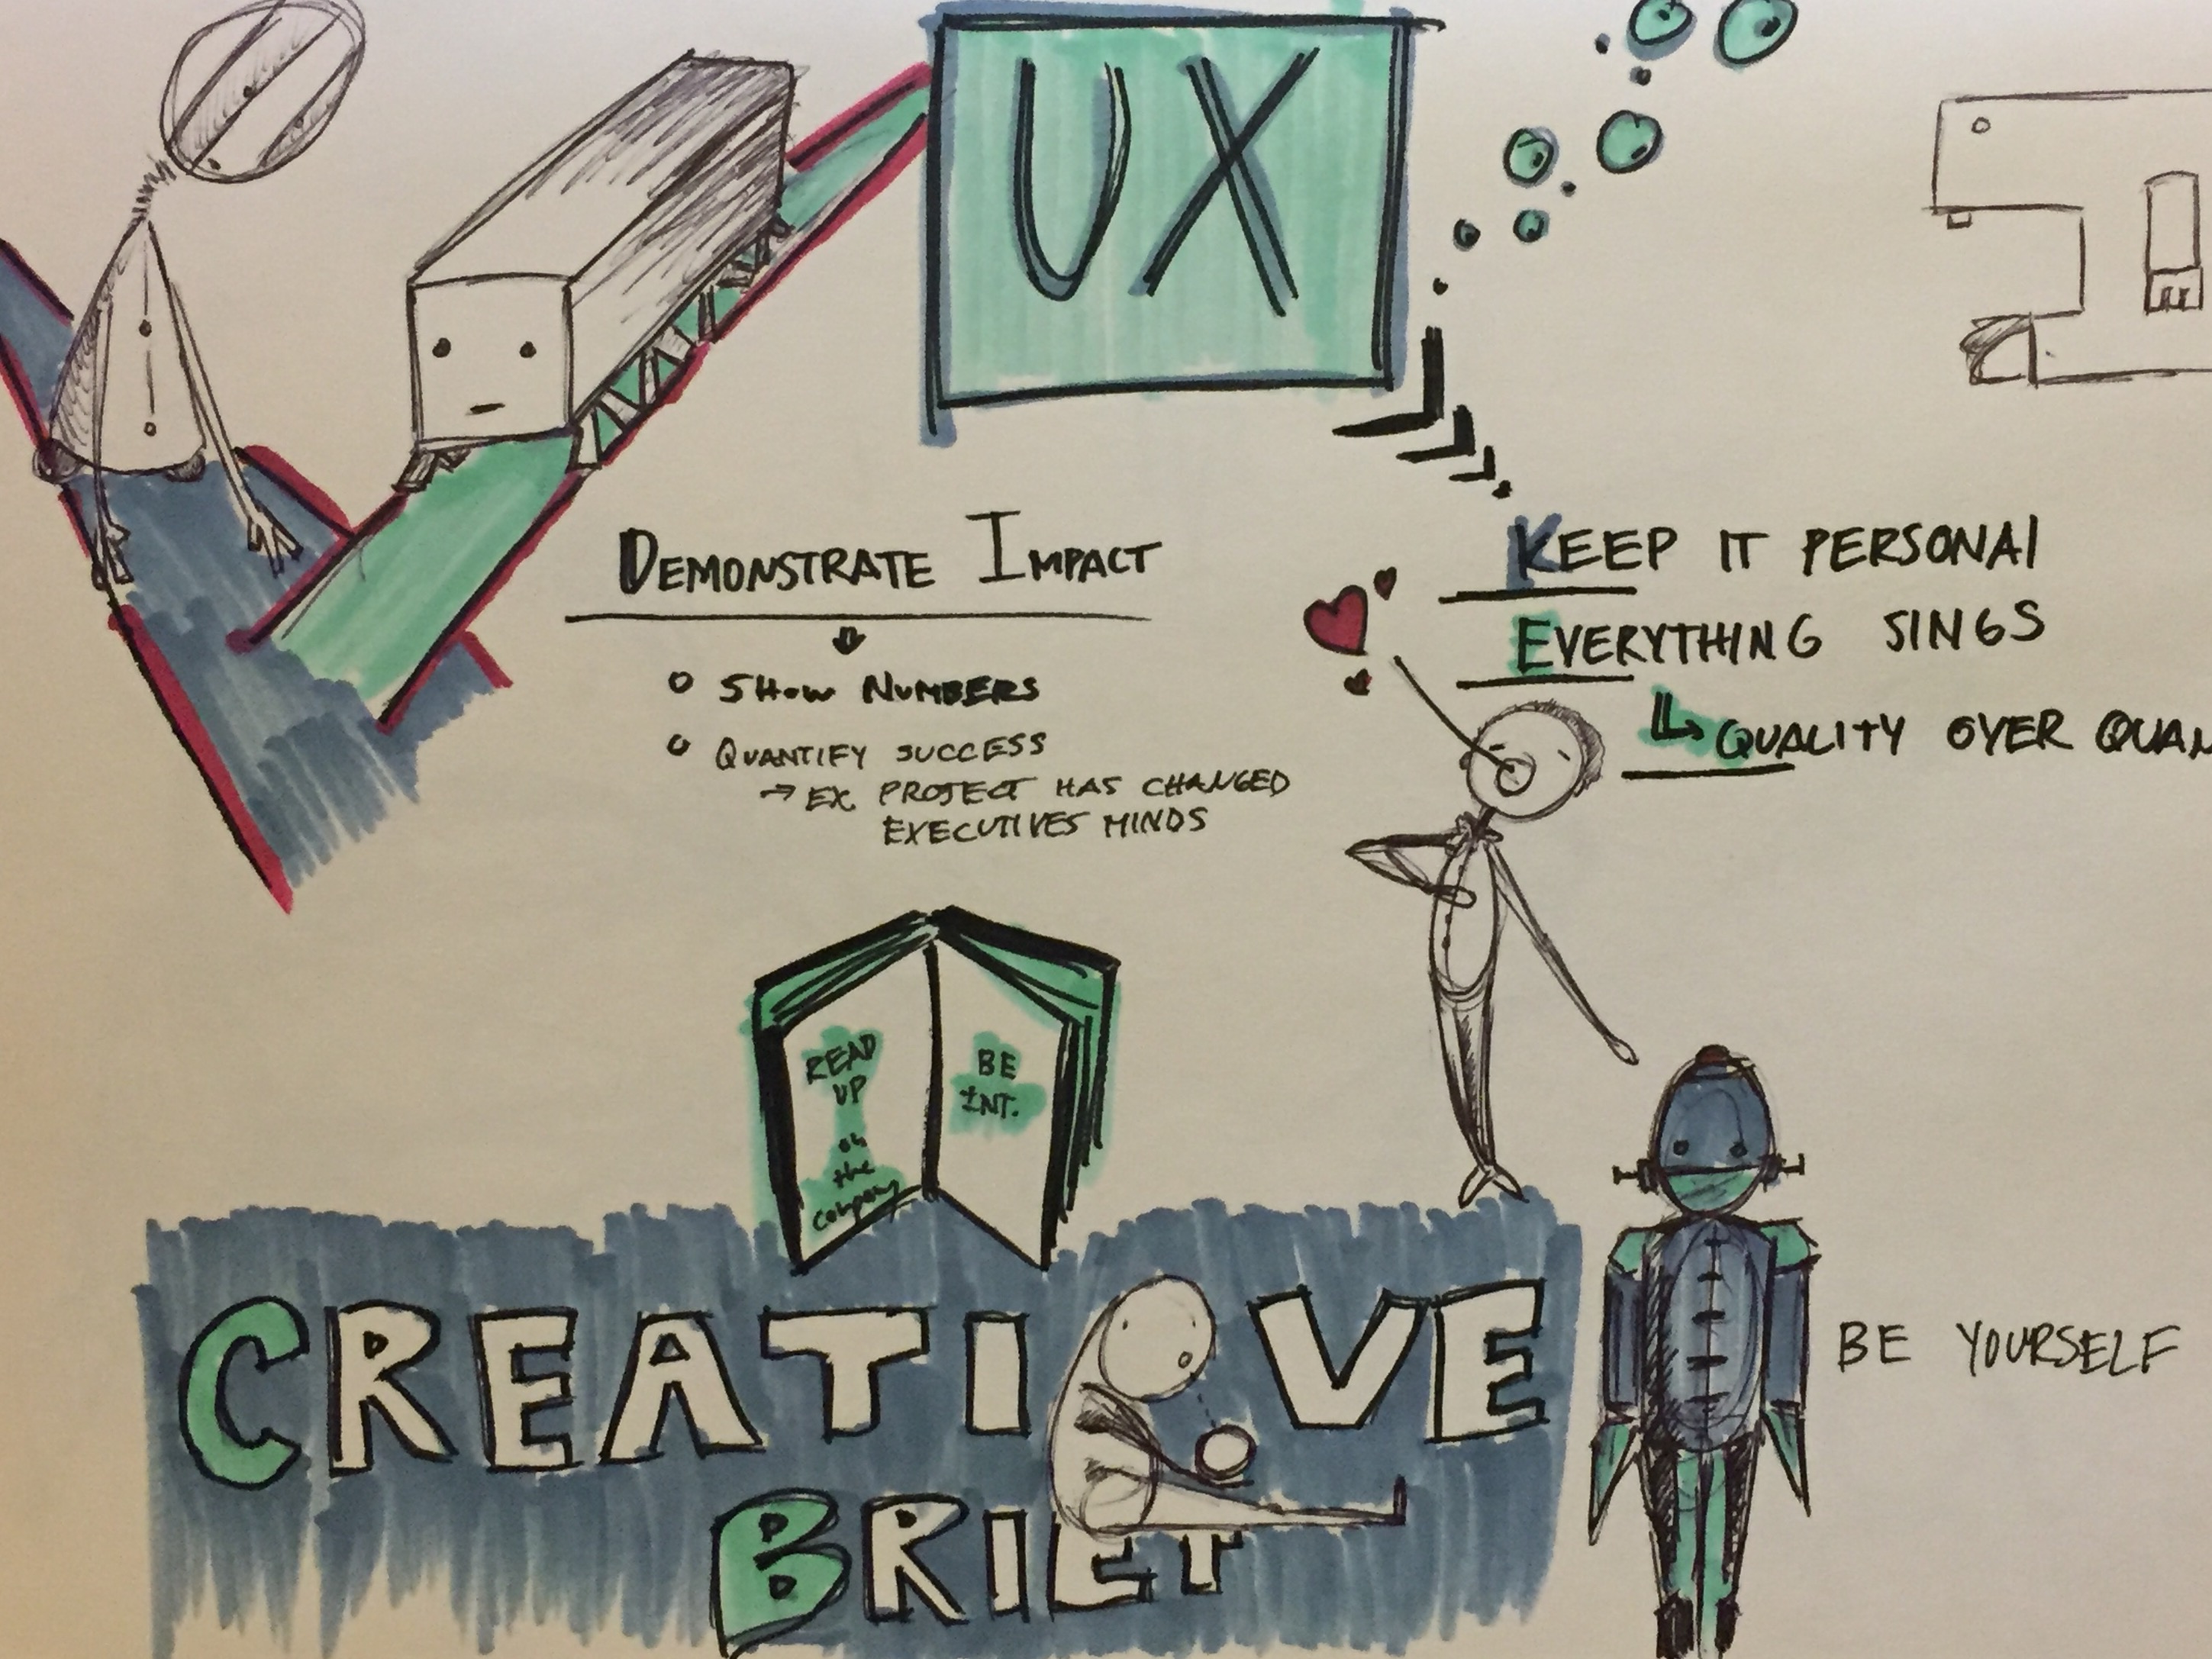 UX
DEMONSTRATE IMPACT
SHOW NUMBERS
QUANTIFY SUCCESS
→ EX. PROJECT HAS CHANGED
EXECUTIVES MINDS
KEEP IT PERSONAL
EVERYTHING SINGS
QUALITY OVER QUAN
READ
UP
on
the
company
BE
INT.
CREATIVE
BRIEF
BE YOURSELF